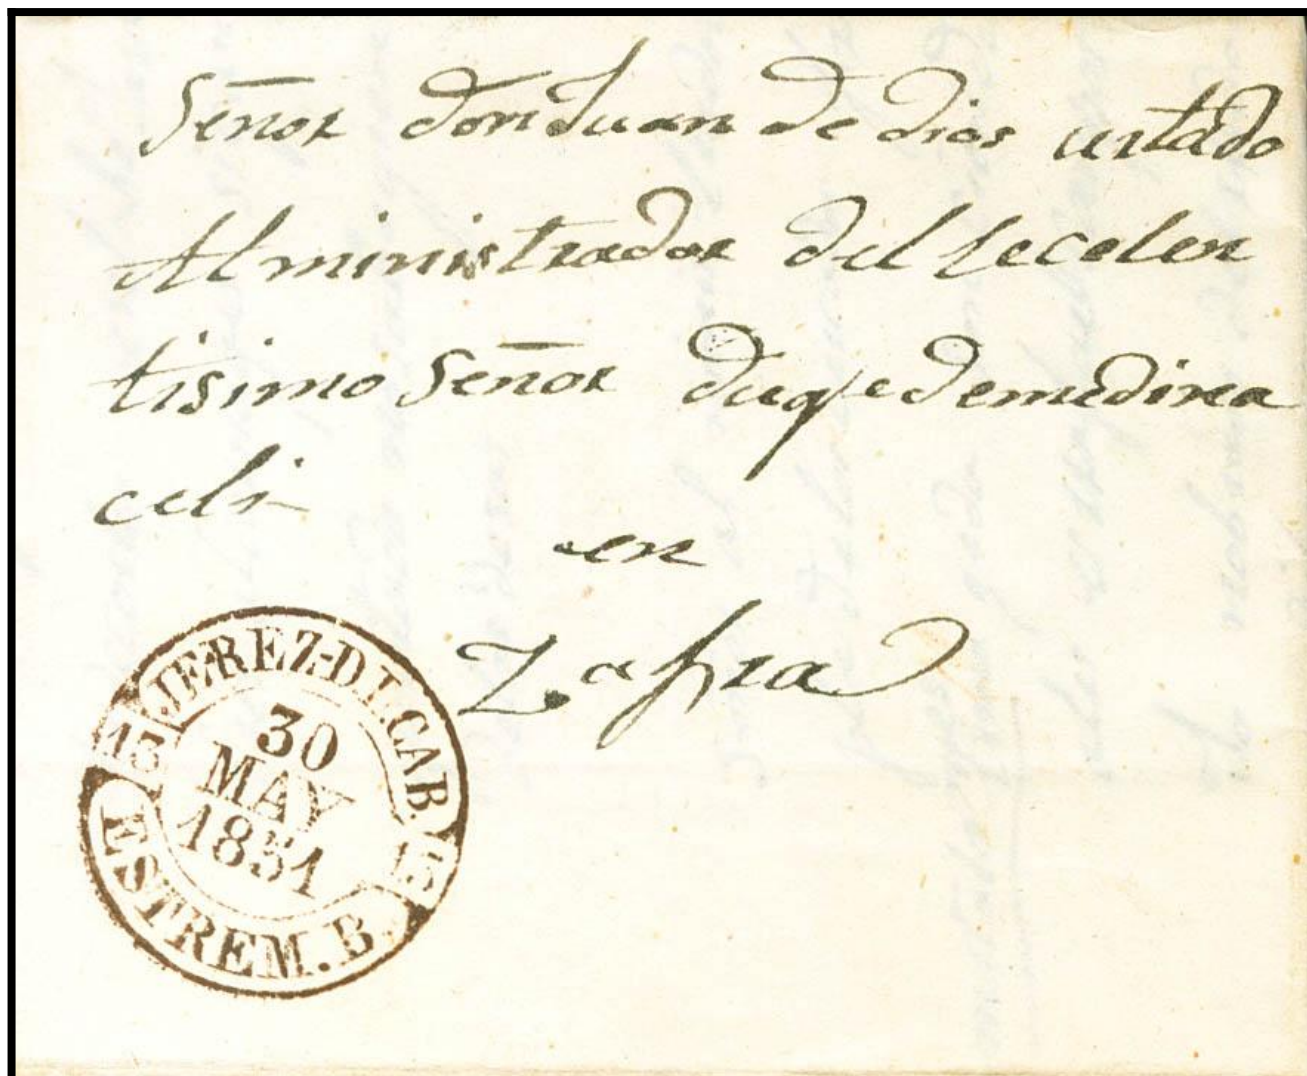 Señor don Juan de dios urtado
Alministrador del Secelen
tisimo Señor duqe de medina
celi
en
Zafra
JEREZ-D.L.CAB.
13 13
30
MAY
1851
ESTREM. B.